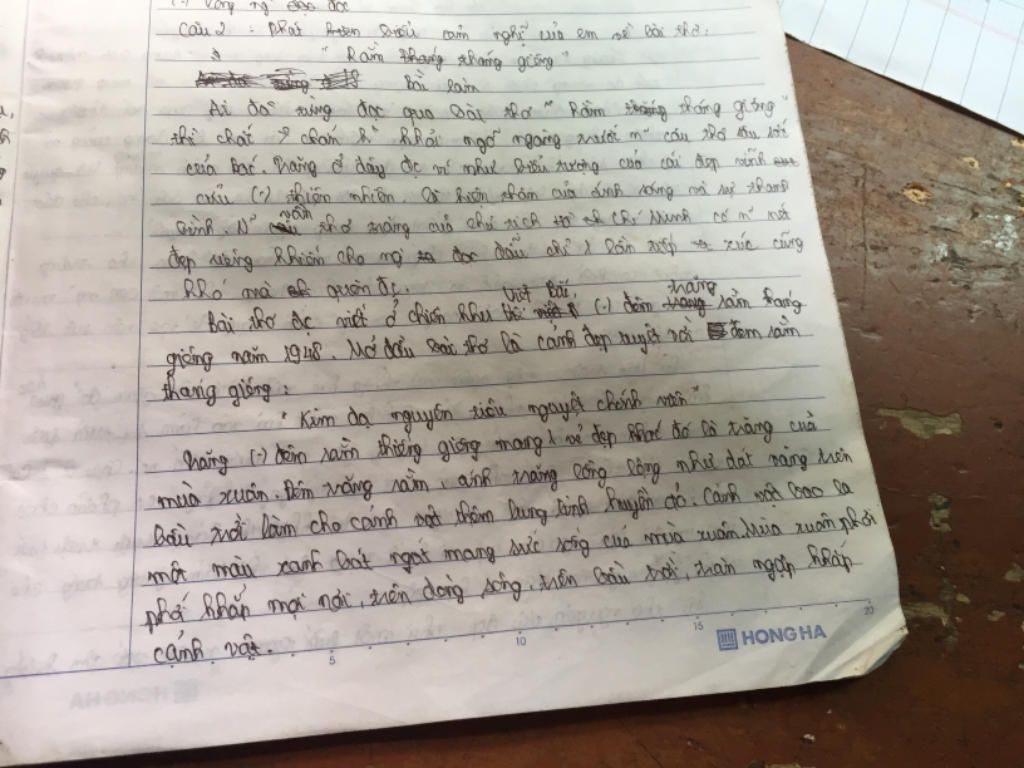 Câu 2 : Phát biểu cảm nghĩ của em về bài thơ:
" Rằm tháng giêng "
Bài làm
Ai đã từng đọc qua bài thơ " Rằm tháng giêng "
thì chắc chắn k khỏi ngỡ ngàng trước n~ câu thơ
của Bác. Trăng ở đây đc ví như biểu tượng của cái đẹp vĩnh
cửu (.) thiên nhiên, là hiện thân của ánh sáng và sự thanh
bình. N~ vần thơ trăng của chủ tịch Hồ Chí Minh có n~ nét
đẹp riêng khiến cho ng đọc dẫu chỉ 1 lần tiếp xúc cũng
khó mà quên đc.
Bài thơ đc viết ở chiến khu Việt Bắc, (.) đêm trăng rằm tháng
giêng năm 1948. Mở đầu bài thơ là cảnh đẹp tuyệt vời đêm rằm
tháng giêng :
" Kim dạ nguyên tiêu nguyệt chính viên "
Trăng (.) đêm rằm tháng giêng mang 1 vẻ đẹp khác đó là trăng của
mùa xuân. Đêm trăng rằm, ánh trăng lồng lộng như dát vàng trên
bầu trời làm cho cảnh vật thêm lung linh huyền ảo. Cảnh vật bao la
một màu xanh bát ngát mang sức sống của mùa xuân. Mùa xuân phơi
phới khắp mọi nơi, trên dòng sông, trên bầu trời, tràn ngập khắp
cảnh vật.
5 10 15 20
HONG HA